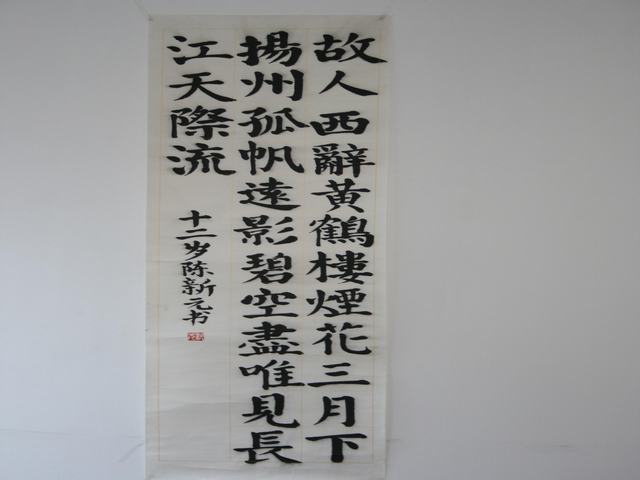 故人西辭黃鶴樓煙花三月下
揚州孤帆遠影碧空盡唯見長
江天際流
十二岁陈新元书